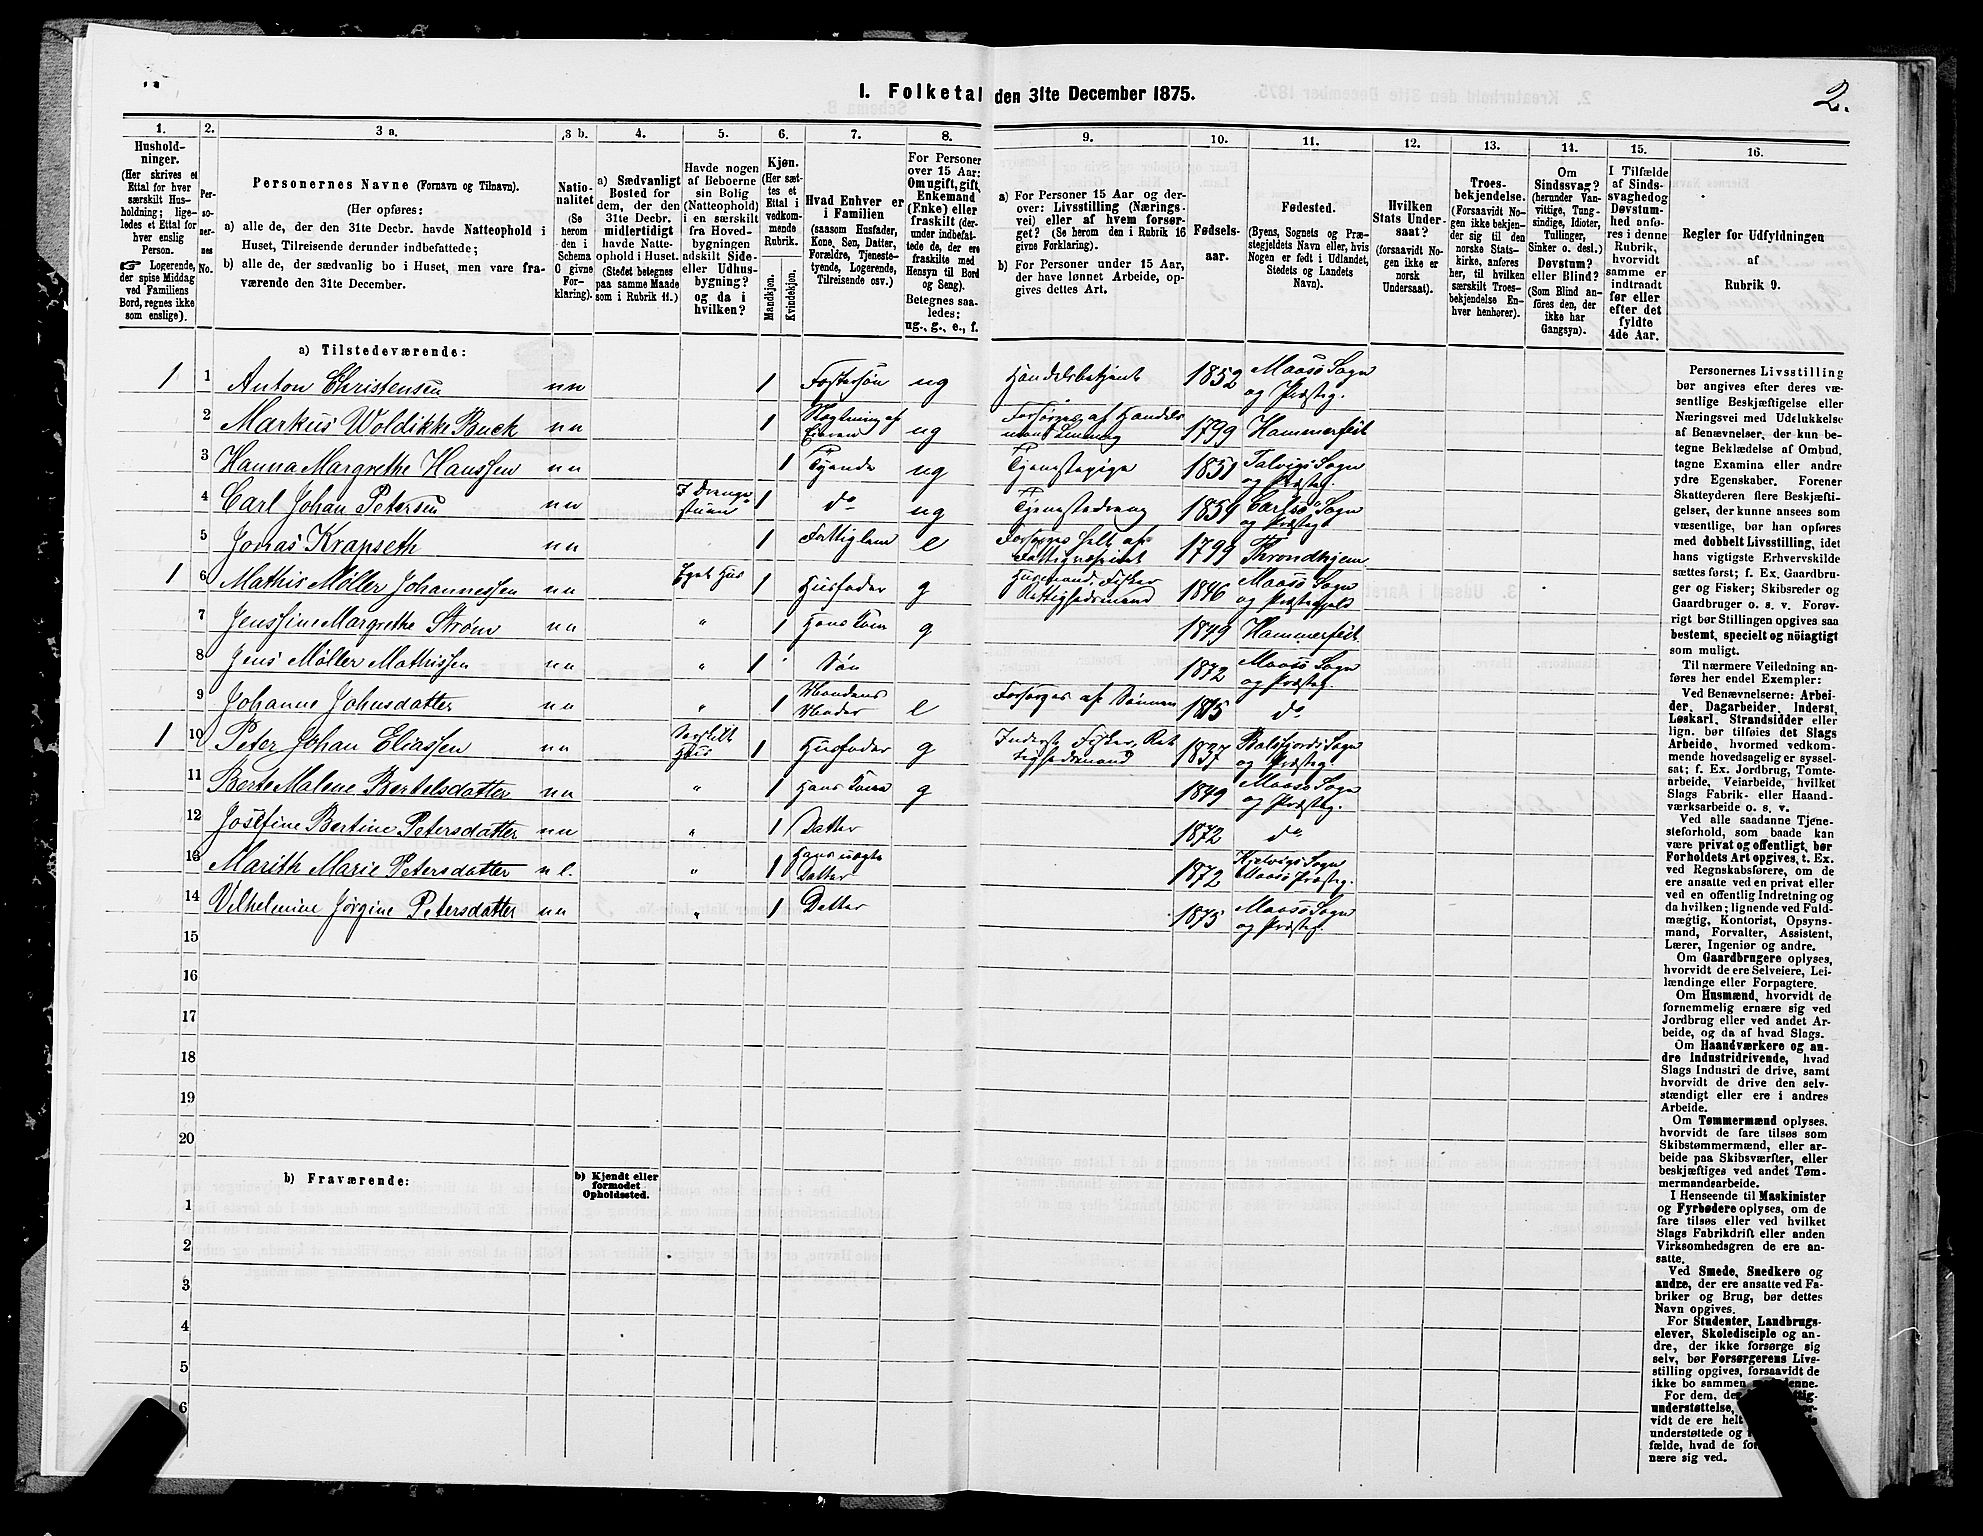 I. Folketal den 31te December 1875.
2.
1.
Hushold-
ninger.
(Her skrives et
Ettal for hver
særskilt Hus-
holdning; lige-
ledes et Ettal for
hver enslig
Person.
☞ Logerende,
der spise Middag
ved Familiens
Bord, regnes ikke
som enslige).
2.
Per-
so-
ner-
nes
No.
3 a.
Personernes Navne (Fornavn og Tilnavn).
(Her opføres:
a) alle de, der den 31te Decbr. havde Natteophold i
Huset, Tilreisende derunder indbefattede;
b) alle de, der sædvanlig bo i Huset, men vare fra-
værende den 31te December.
3 b.
Natio-
nalitet
(Se
herom
den i
Schema
C givne
For-
klaring).
4.
a) Sædvanligt
Bosted for
dem, der den
31te Decbr.
midlertidigt
havde Natte-
ophold i Huset.
(Stedet betegnes
paa samme Maade
som i Rubrik 11.)
5.
Havde nogen
af Beboerne
sin Bolig
(Natteophold)
i en særskilt
fra Hoved-
bygningen
adskilt Side-
eller Udhus-
bygning?
og da i
hvilken?
6.
Kjøn.
(Her sæt-
tes et
Ettal i
vedkom-
mende
Rubrik.
Mandkjøn.
Kvindekjøn.
7.
Hvad Enhver er
i Familien
(saasom Husfader,
Kone, Søn, Datter,
Forældre, Tjeneste-
tyende, Logerende,
Tilreisende osv.)
8.
For Personer
over 15 Aar:
Om ugift, gift,
Enkemand
(Enke) eller
fraskilt (der-
under indbefat-
tede de, der ere
fraskilte med
Hensyn til Bord
og Seng).
Betegnes saa-
ledes:
ug., g., e., f.
9.
a) For Personer 15 Aar og der-
over: Livsstilling (Nærings-
vei) eller af hvem forsør-
get? (Se herom den i Rubrik 16
givne Forklaring).
b) For Personer under 15 Aar,
der have lønnet Arbeide, op-
gives dettes Art.
10.
Fødsels-
aar.
11.
Fødested.
(Byens, Sognets og Præ-
stegjeldets Navn eller, hvis
Nogen er født i Udlandet,
Stedets og Landets
Navn).
12.
Hvilken
Stats Under-
saat?
(forsaavidt No-
gen ikke er
norsk
Undersaat).
13.
Troes-
bekjendelse.
(Forsaavidt No-
gen ikke bekjen-
der sig til den
norske Stats-
kirke, anføres
her, til hvilken
særskilt Troes-
bekjendelse En-
hver henhører).
14.
Om
Sindssvag?
(herunder Van-
vittige, Tung-
sindige, Idioter,
Tullinger,
Sinker o. desl.)
Døvstum?
eller Blind?
(Som Blind an-
føres den, der
ikke har
Gangsyn).
15.
I Tilfælde
af Sinds-
svaghed og
Døvstum-
hed anfø-
res i denne
Rubrik,
hvorvidt
samme er
indtraadt
før eller
efter det
fyldte
4de Aar.
16.
Regler for Udfyldningen
af
Rubrik 9.
a) Tilstedeværende:
1 1 Anton Christensen nn 1 Fostersøn ug Handelsbetjent 1852 Maasø Sogn og Præsteg.
2 Markus Woldikke Buck nn 1 ug Forsørges af Handels 1799 Hammerfest
3 Hanna Margrethe Hanssen nn 1 Tyende ug Tjenestepige 1851 Talvigs Sogn og Præsteg.
4 Carl Johan Petersen nn I Drenge stuen 1 do ug Tjenestedreng 1859 Carlsø Sogn og Præsteg
5 Jonas Krapseth nn 1 Fattiglem e Forsørges helt af Fattigvæsenet 1799 Throndhjem
1 6 Mathis Møller Johannessen nn Eget Hus 1 Husfader g Husmand Fisker Rettighedsmand 1846 Maasø Sogn og Præstegjeld
7 Jenssine Margrethe Strøm nn " 1 Hans Kone g 1849 Hammerfest
8 Jens Møller Mathissen nn " 1 Søn 1872 Maasø Sogn og Præsteg.
9 Johanne Johnsdatter nn " 1 Mandens Moder e Forsørges af Sønnen 1815 do
1 10 Peter Johan Eliassen nn Særskilt Hus 1 Husfader g Inderst Fisker, Ret tighedsmand 1837 Balsfjords Sogn og Præsteg.
11 Berte Malene Bertelsdatter nn " 1 Hans Kone g 1849 Maasø Sogn og Præsteg.
12 Josefine Bertine Petersdatter nn " 1 Datter 1872 do
13 Marith Marie Petersdatter nl. " 1 Hans uægte Datter 1872 Kjelvigs Sogn Maasø Præsteg.
14 Vilhelmine Jørgine Petersdatter nn " 1 Datter 1875 Maasø Sogn og Præsteg.
15
16
17
18
19
20
b) Fraværende:
b) Kjendt eller
formodet
Opholdssted.
1
2
3
4
5
6
Personernes Livsstilling
bør angives efter deres væ-
sentlige Beskjæftigelse eller
Næringsvei med Udelukkelse
af Benævnelser, der kun be-
tegne Beklædelse af Ombud,
tagne Examina eller andre
ydre Egenskaber. Forener
Skatteyderen flere Beskjæfti-
gelser, der kunne ansees som
væsentlige, bør han opføres
med dobbelt Livsstilling, idet
hans vigtigste Erhvervskilde
sættes først; f. Ex. Gaardbru-
ger og Fisker; Skibsreder og
Gaardbruger o. s. v. Forøv-
rigt bør Stillingen opgives saa
bestemt, specielt og nöiagtigt
som muligt.
Til nærmere Veiledning an-
føres her endel Exempler:
Ved Benævnelserne: Arbei-
der, Dagarbeider, Inderst,
Løskarl, Strandsidder eller
lign. bør tilføies det Slags
Arbeide, hvormed vedkom-
mende hovedsagelig er syssel-
sat; f. Ex. Jordbrug, Tomte-
arbeide, Veiarbeide, hvilket
Slags Fabrik- eller Haand-
værksarbeide o. s. v.
Ved alle saadanne Tjene-
steforhold, som baade kan
være privat og offentligt, bør
Forholdets Art opgives, t. Ex.
ved Regnskabsførere, om de
ere ansatte ved en privat eller
ved en offentlig Indretning og
da hvilken; lignende ved Fuld-
mægtig, Kontorist, Opsyns-
mand, Forvalter, Assistent,
Lærer, Ingeniør og andre.
Om Gaardbrugere oplyses,
hvorvidt de ere Selveiere, Lei-
lændinge eller Forpagtere.
Om Husmænd, hvorvidt de
fornemmelig ernære sig ved
Jordbrug eller ved andet Ar-
beide, og da af hvad Slags.
Om Haandværkere og an-
dre Industridrivende, hvad
Slags Industri de drive, samt
hvorvidt de drive den selv-
stændigt eller ere i andres
Arbeide.
Om Tømmermænd oplyses,
hvorvidt de fare tilsøs som
Skibstømmermænd, eller ar-
beide paa Skibsværfter, eller
beskjæftiges ved andet Tøm-
mermandsarbeide.
I Henseende til Maskinister
og Fyrbødere oplyses, om de
fare tilsøs eller ved hvilket
Slags Fabrikdrift eller anden
Virksomhedsgren de ere an-
satte.
Ved Smede, Snedkere og
andre, der ere ansatte ved Fa-
briker og Brug, bør dettes
Navn opgives.
For Studenter, Landbrugs-
elever, Skoledisciple og an-
dre, der ikke forsørge sig
selv, bør Forsørgerens Livs-
stilling opgives, forsaavidt de
ikke bo sammen
For dem, der
understøttelse,
vidt de ere helt
understøttede og
fælde, hvad de
nære sig ved.